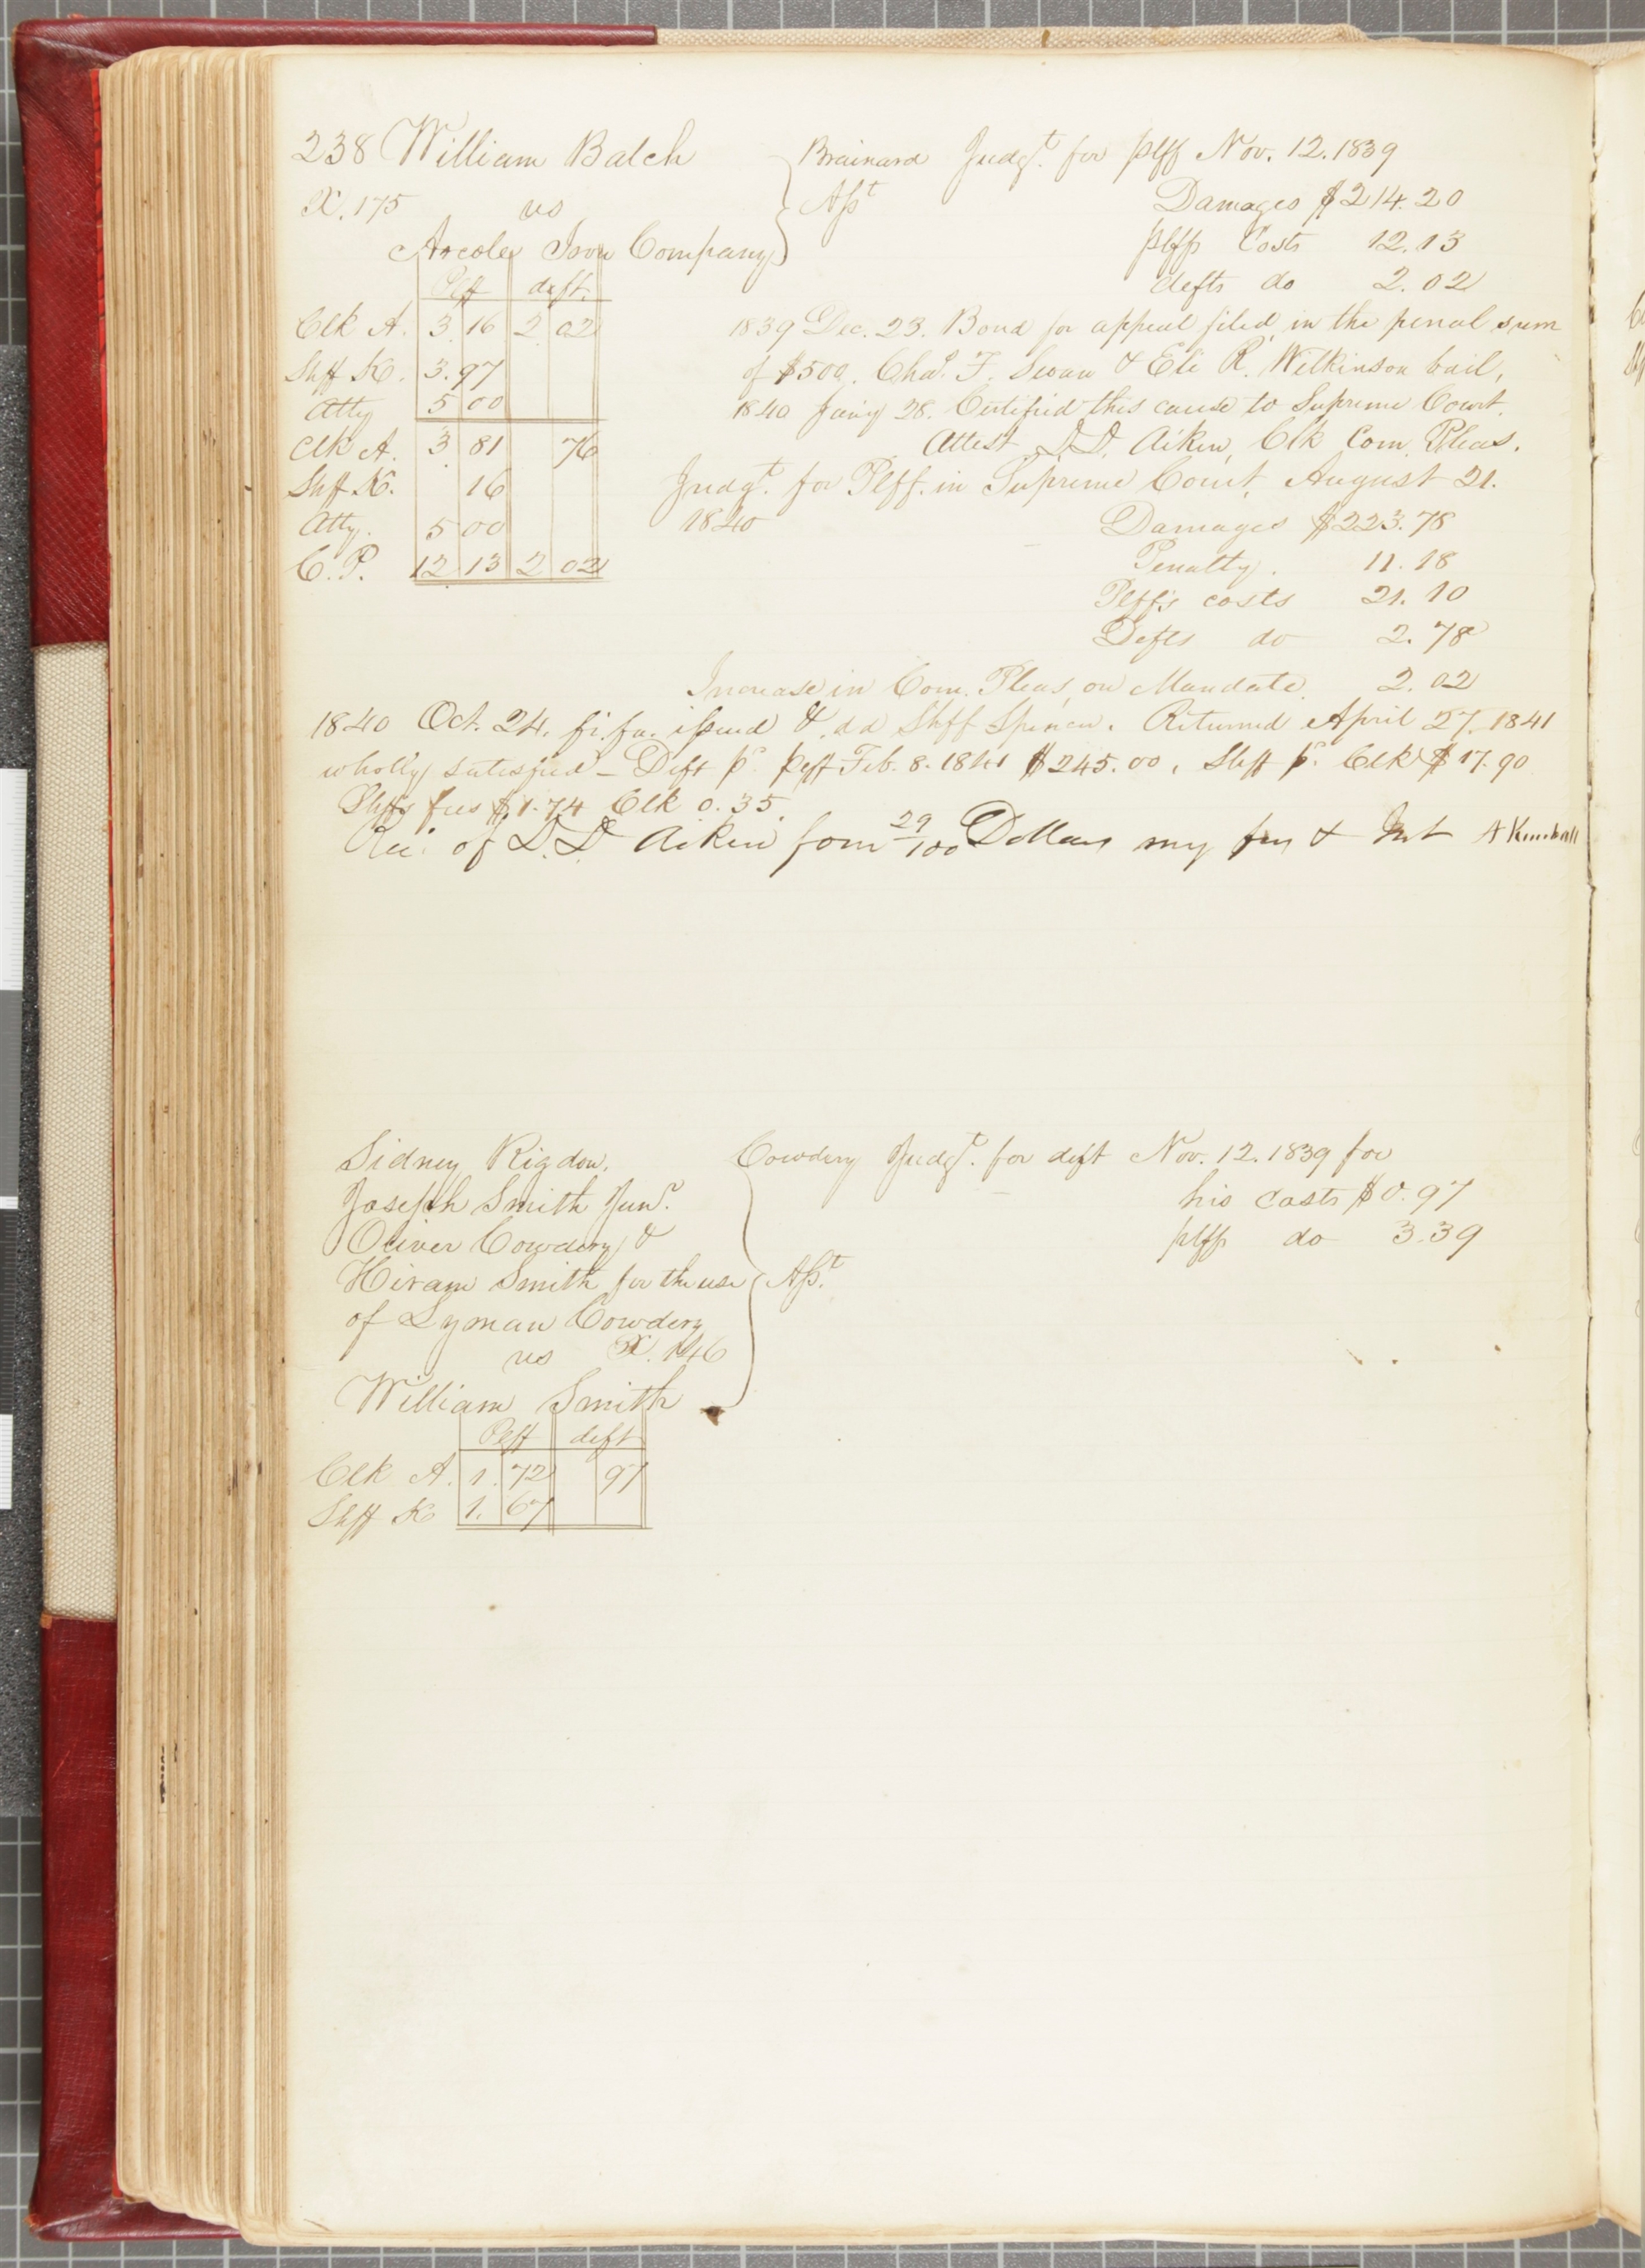 238 William Balch
X. 175 vs
Arcole Iron Company
Brainard Judgt. for plff Nov. 12. 1839
Asst
Damages $214.20
plffs Costs 12.13
defts do 2.02
Plff deft.
Clk A. 3.16 2 02
Shff K. 3.97
Atty 5 00
Clk A. 3 81 76
Shff K. 16
Atty. 5 00
C. P. 12 13 2 02
1839 Dec. 23. Bond for appeal filed in the penal sum
of $500. Chas. F. Swan & Eli R. Wilkinson bail,
1840 Jany 28. Certified this cause to Supreme Court.
Attest D. D. Aiken, Clk Com. Pleas.
Judgt. for Plff. in Supreme Court, August 21.
1840 Damages $223.78
Penalty. 11.18
Plff's costs 21.10
Defts do 2.78
Increase in Com. Pleas, on Mandate. 2.02
1840 Oct. 24. fi. fa. issued & dd Shff Spencer. Returned April 27. 1841
wholly satisfied – Deft pd. plff Feb. 8. 1841 $245.00, Shff pd. Clk $17.90
Shffs fees $1.74 Clk 0.35.
Rec. of D. D Aiken four 29/100 Dollars my fees & Int A Kimball
Sidney Rigdon,
Joseph Smith Junr.
Oliver Cowdery &
Hiram Smith for the use
of Lyman Cowdery
vs X. 146
William Smith
Cowdery Judgt. for deft Nov. 12. 1839 for
his costs $0.97
plffs do 3.39
Asst.
Plff deft
Clk A. 1.72 97
Shff K 1.67